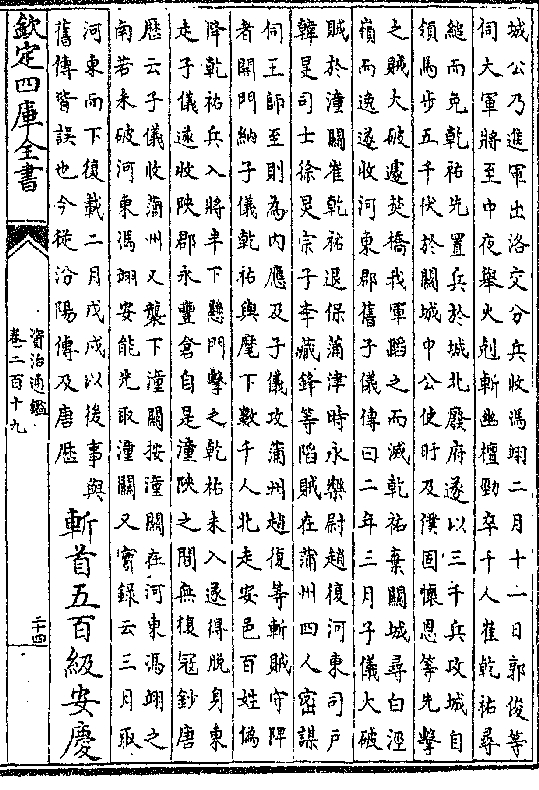 城公乃進軍出洛交分兵收馮翊二月十一日郭俊等
伺大軍將至中夜舉火剋斬幽檀勁卒千人崔乾祐尋
縋而免乾祐先置兵於城北廢府遂以三千兵攻城自
領馬步五千伏於關城中公使旰及僕固懷恩等先擊
之賊大破遽焚橋我軍蹈之而滅乾祐棄關城尋白涇
嶺而逸遂收河東郡舊子儀傳曰二年三月子儀大破
賊於潼關崔乾祐退保蒲津時永樂尉趙復河東司戶
韓旻司士徐炅宗子李藏鋒等陷賊在蒲州四人密謀
伺王師至則為内應及子儀攻蒲州趙復等斬賊守陴
者開門納子儀乾祐與麾下數千人北走安邑百姓僞
降乾祐兵入將半下懸門擊之乾祐未入遂得脱身東
走子儀遂收陜郡永豐倉自是潼陜之間無復寇鈔唐
歴云子儀收蒲州又襲下潼關按潼關在河東馮翊之
南若未破河東馮翊安能先取潼關又實録云三月取
河東而下復載二月戊戌以後事與
舊傳皆誤也今從汾陽傳及唐歴
斬首五百級安慶
欽定四庫全書
資治通鑑
卷二百十九
二十四